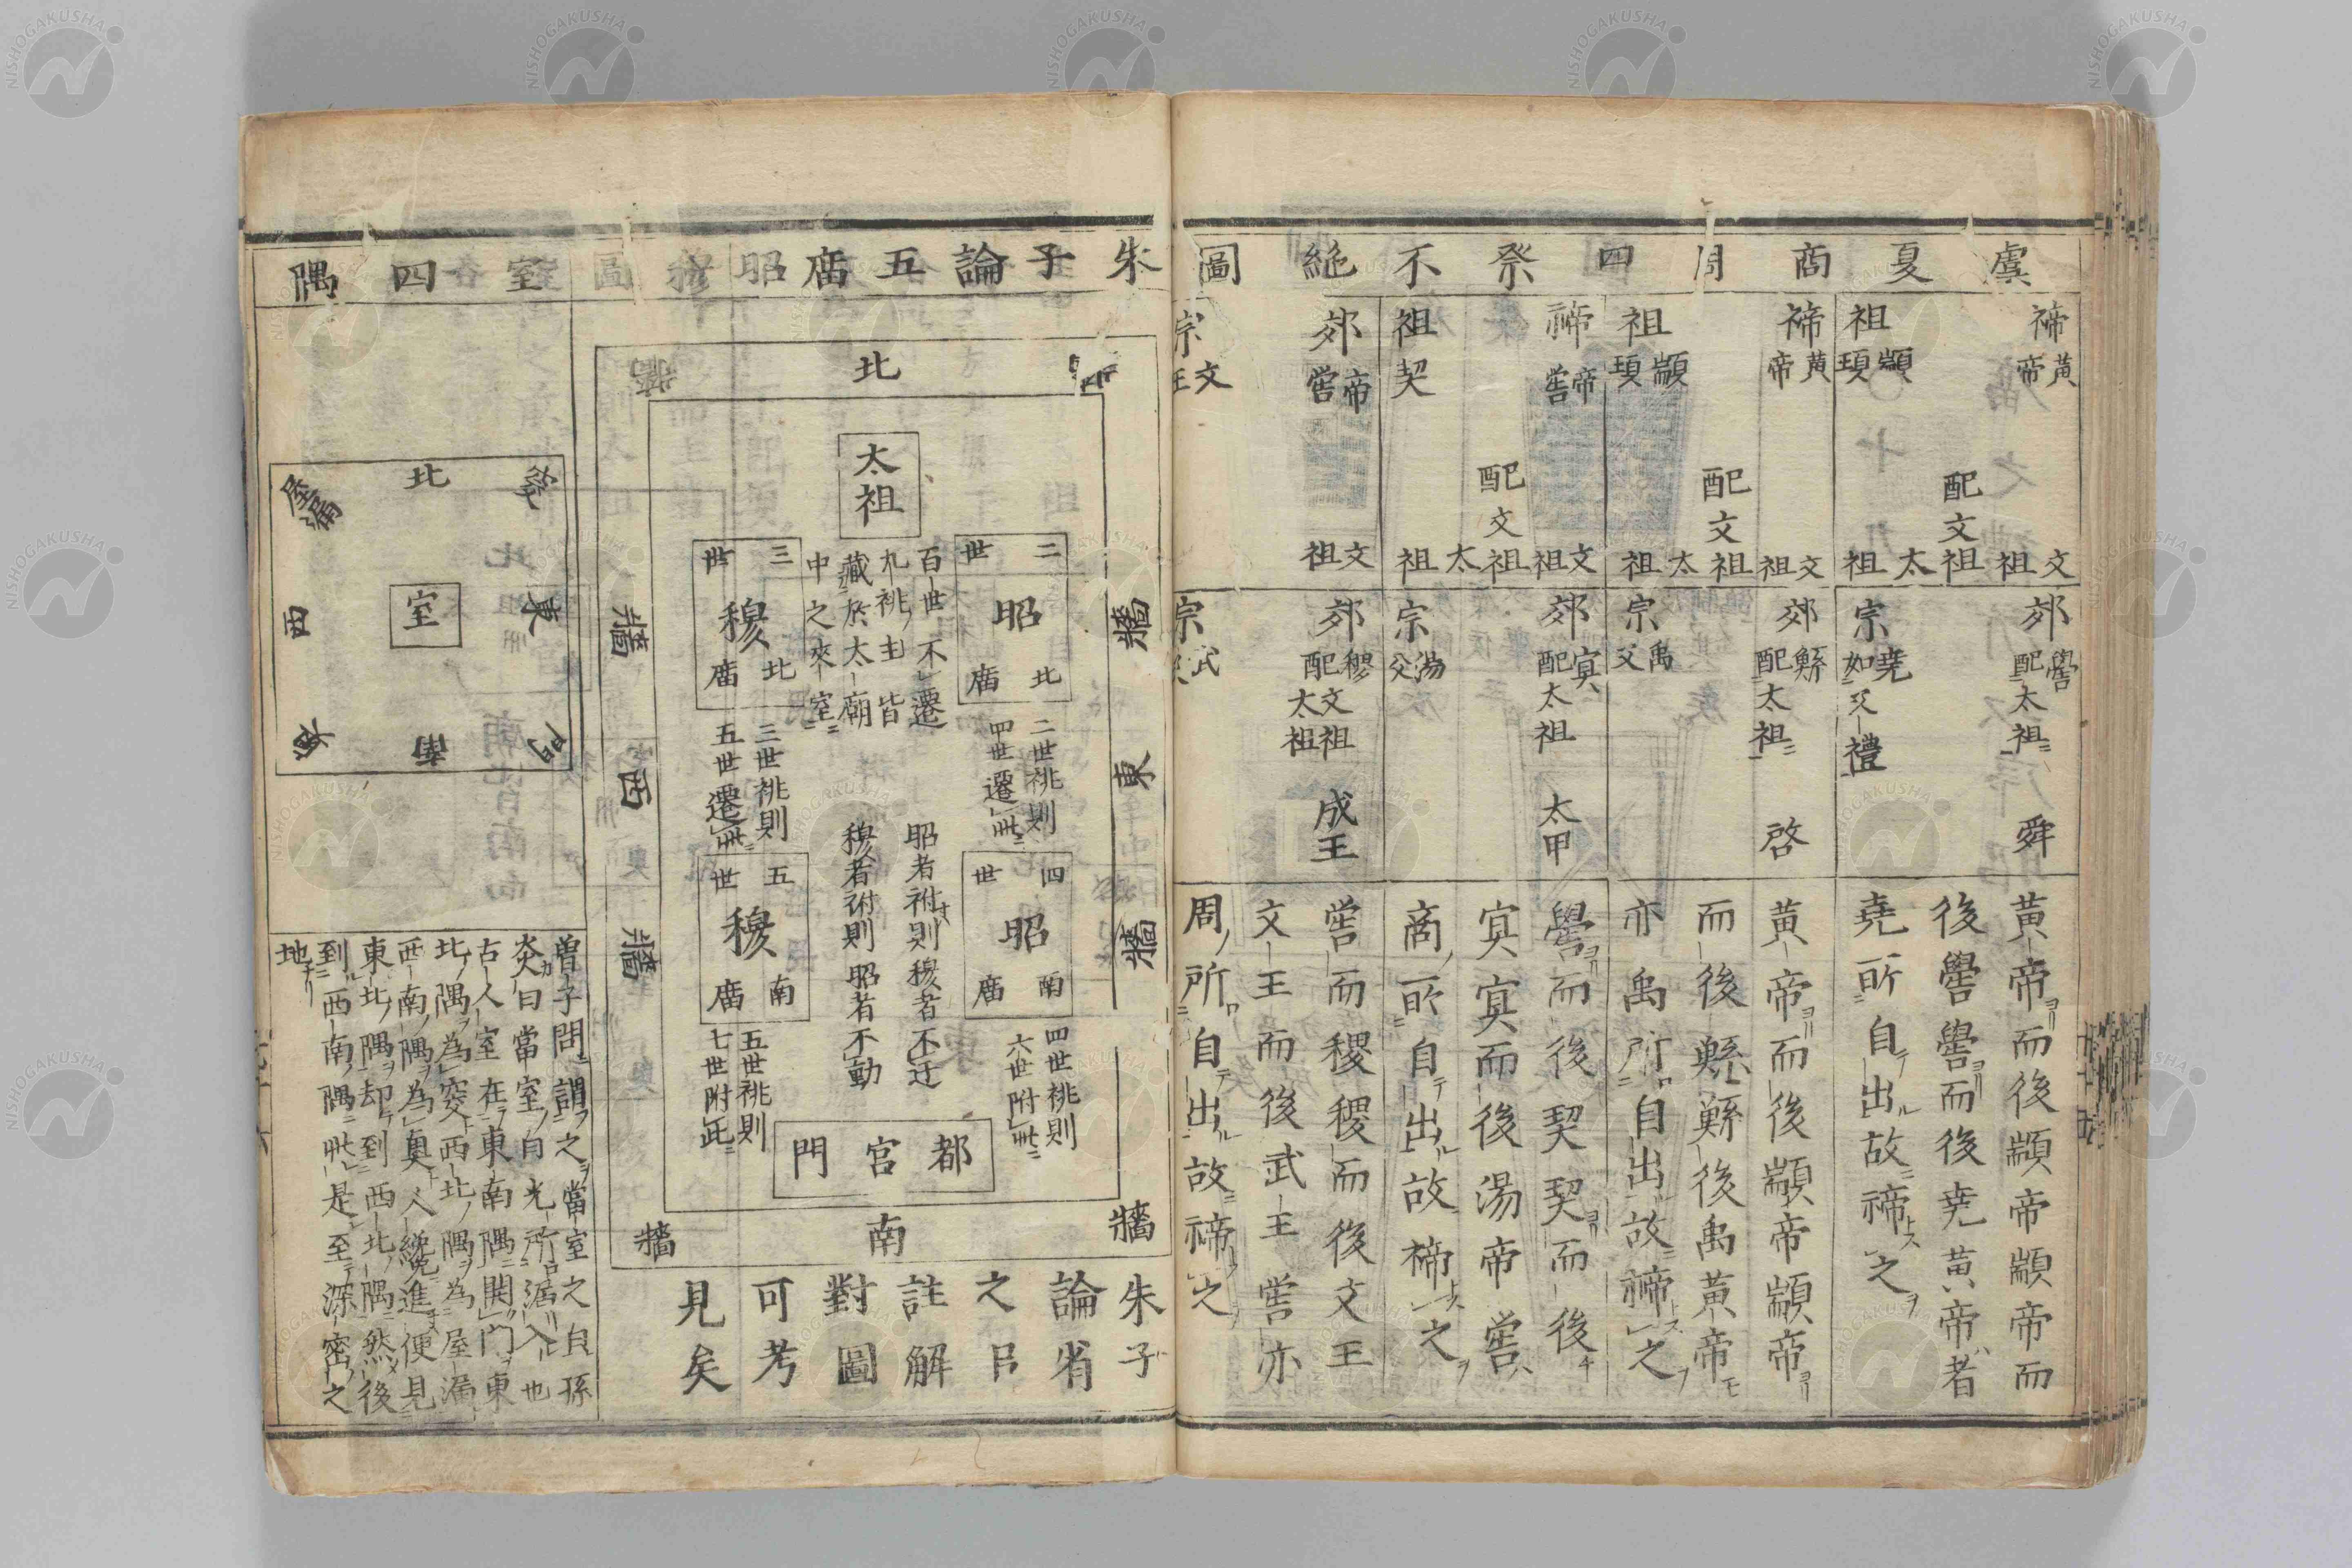 虞夏商周四祭不絶圖
禘黃帝
配文祖
文祖
祖顓頊
太祖
郊嚳配太祖
舜
宗堯如父禮
黃帝而後顓帝顓帝而
後嚳嚳而後堯黃帝者
堯所自出故禘之
禘黃帝
配文祖
文祖
祖顓頊
太祖
郊鯀配太祖
啓
宗禹父
黃帝而後顓帝顓帝
而後鯀鯀後禹黃帝
亦禹所自出故禘之
禘帝嚳
配文祖
文祖
祖契
太祖
郊冥配太祖
太甲
宗湯父
嚳而後契契而後
冥冥而後湯帝嚳
商所自出故禘之
郊帝嚳
文祖
宗文王
郊稷配文祖太祖
成王
宗武
嚳而稷稷而後文王
文王而後武王嚳亦
周所自出故禘之
朱子論五廟昭穆圖
北
太祖
二世
昭
北廟
三世
穆
北廟
百世不遷
九祧主皆
藏於太廟
中之夾室
二世祧則
四世遷此
三世祧則
五世遷此
四世
昭
南廟
五世
穆
南廟
昭者祔則穆者不迁
穆者祔則昭者不動
四世祧則
六世附此
五世祧則
七世附此
都宮門
南
東
西
墻
墻
墻
墻
墻
墻
墻
朱子
論省
之
註解
對圖
可考
見矣
室四隅
北
東
南
西
室
屋漏
門
奧
曾子問謂之當室之白孫
炎曰當室白光所漏入也
古人室在東南隅開門東
北隅為窔西北隅為屋漏
西南隅為奧人纔進便見
東北隅却到西北隅然後
到西南隅此是至深密之
地